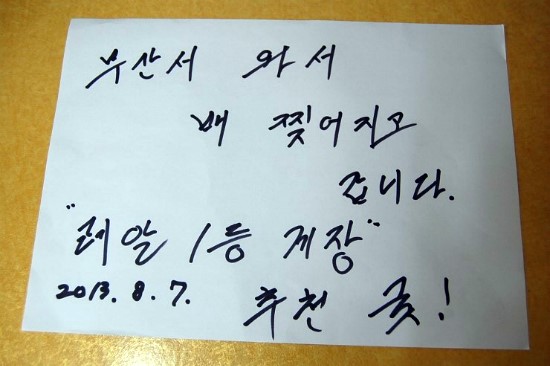 부산서 와서
배 찢어지고
갑니다.
"레알 1등 게장"
2013. 8. 7. 추천 굿!